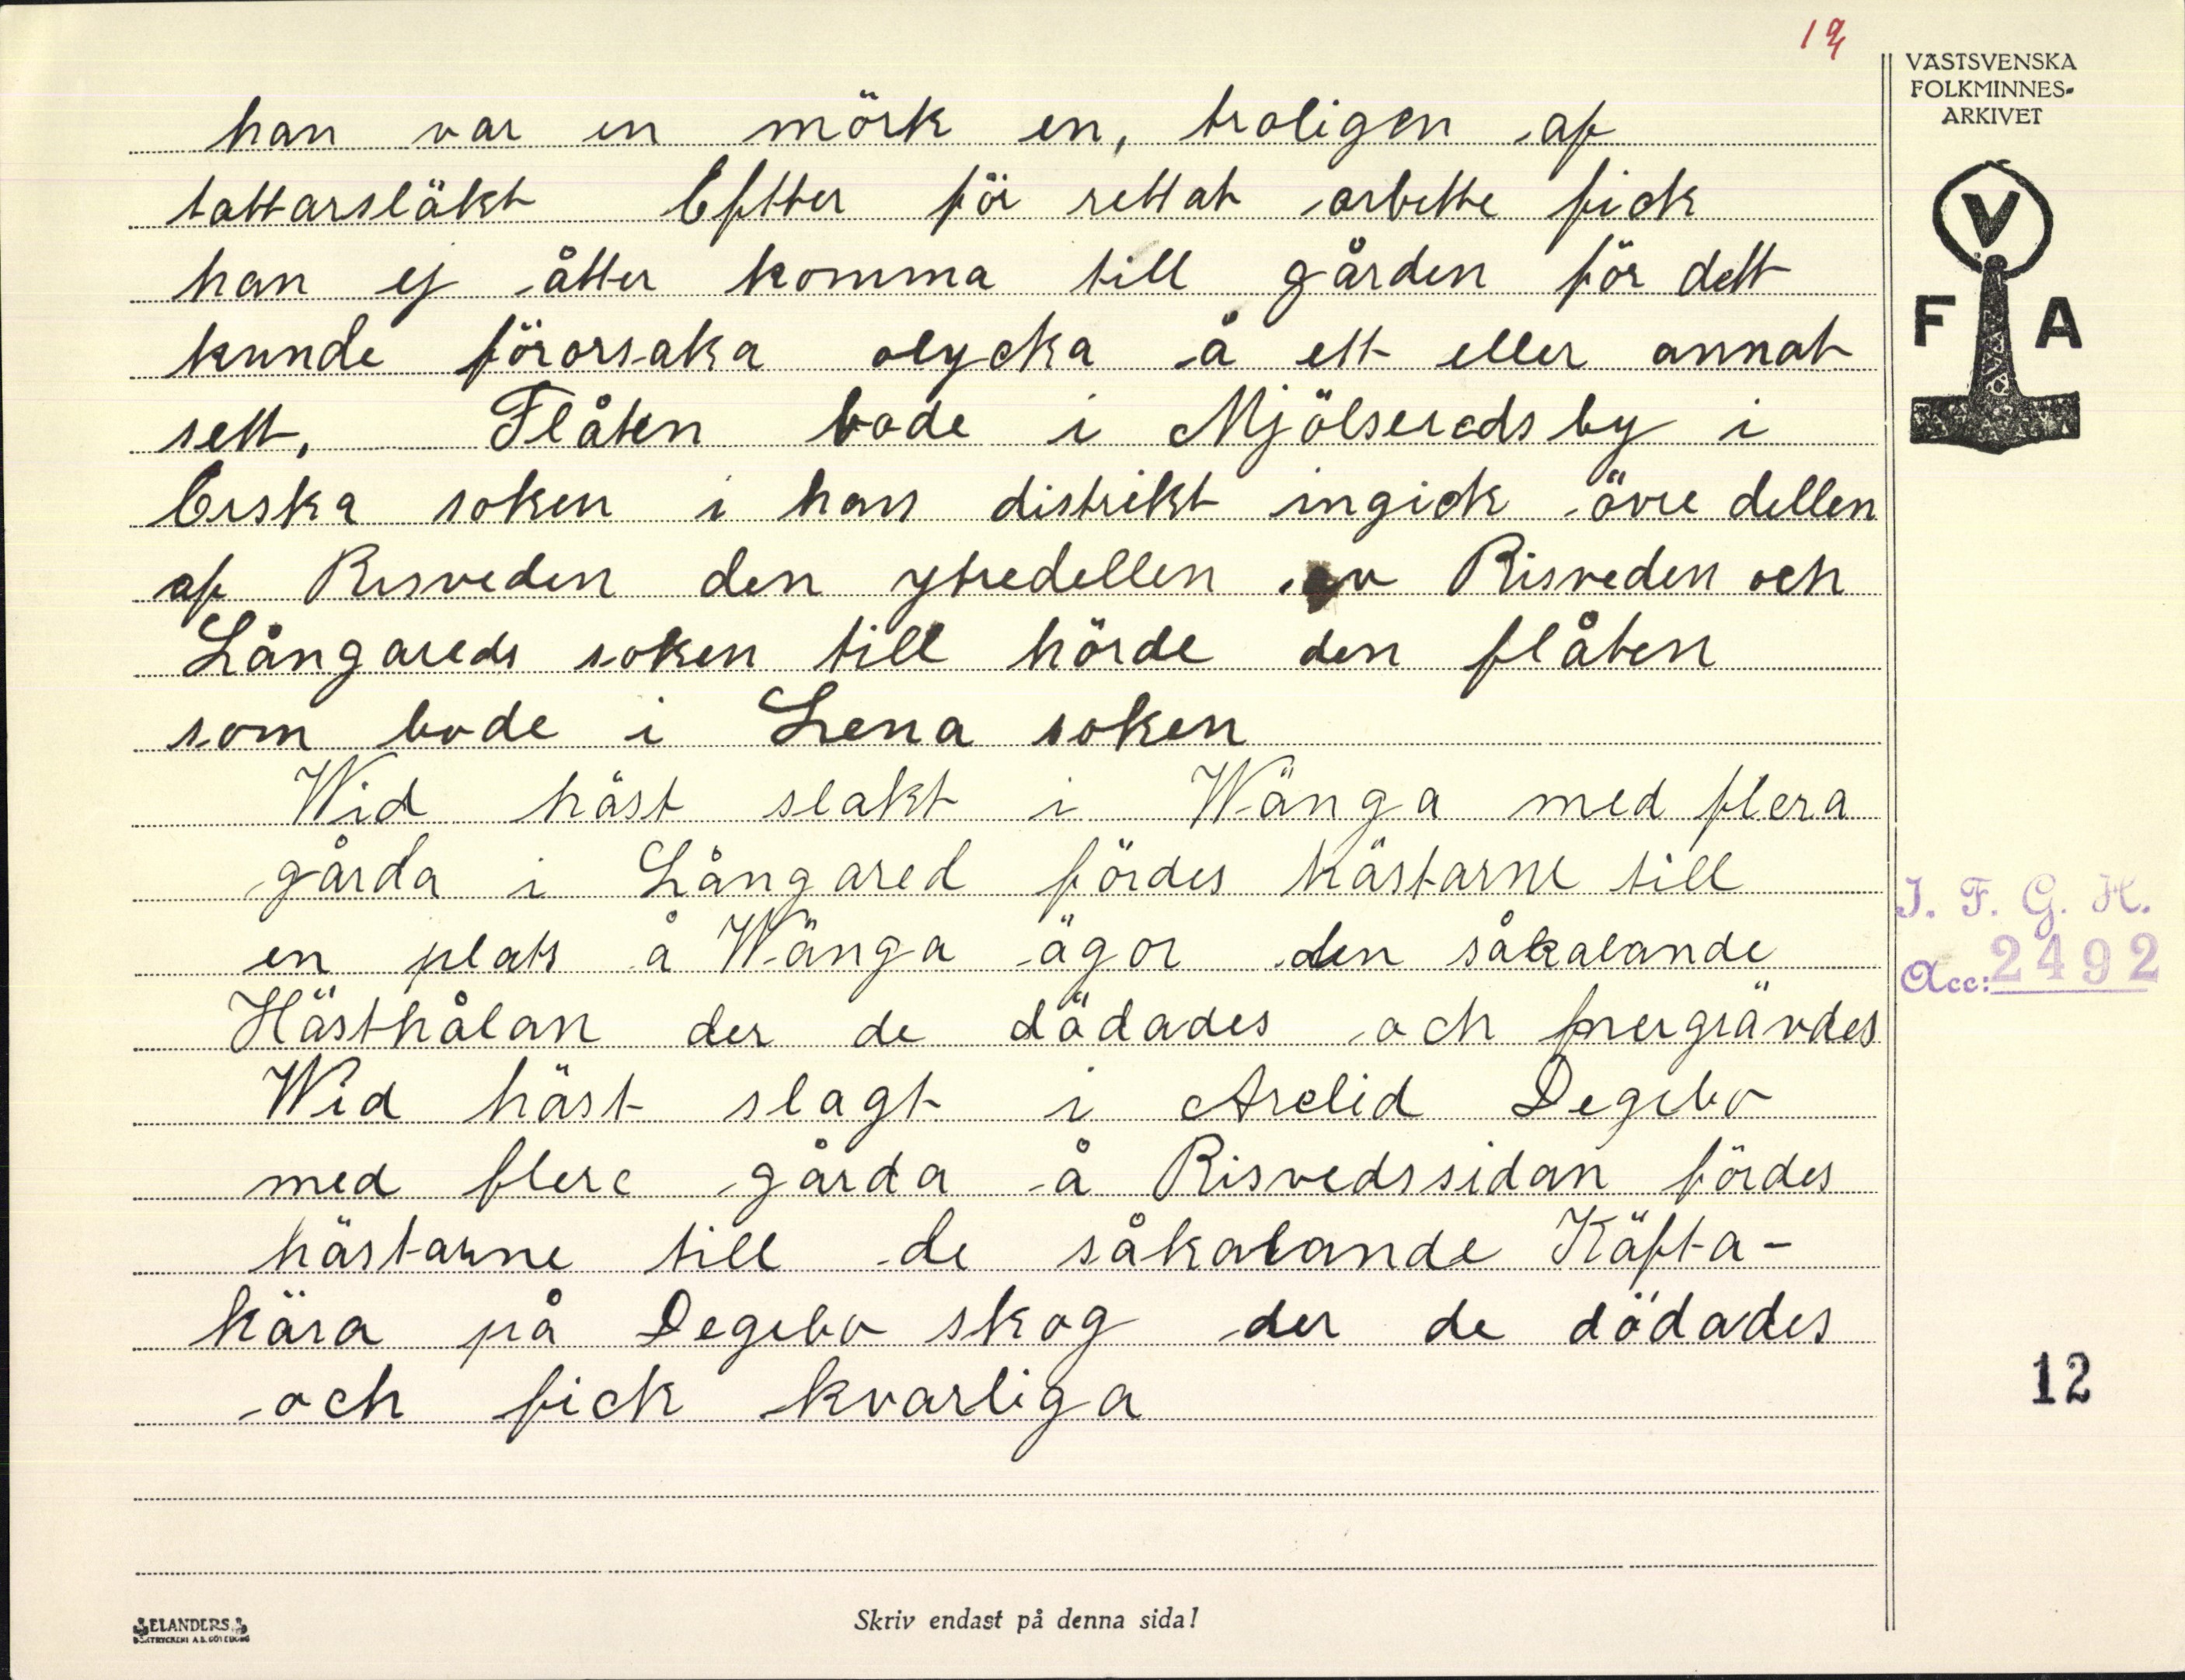 19
VÄSTSVENSKA
FOLKMINNES-
ARKIVET
V
F A
han var en mörk en, troligen af
tattarsläkt Eftter för rettat arbette fick
han ej åtter komma till gården för dett
kunde förorsaka olycka å ett eller annat
sett, Flåten bode i Mjölseredsby i
Erska soken i hans distrikt ingick övre dellen
af Risveden den ytredellen av Risveden och
Långareds soken till hörde den flåten
som bode i Lena soken
Wid häst slakt i Wänga med flera
gårda i Långared fördes hästarne till
en plats å Wänga ägor den såkalande
Hästhålan der de dödades och
Wid häst slagt i Arelid Degebo
med flere gårda å Risvedssidan fördes
hästarne till de såkalande Käfta-
kära på Degebo skog der de dödades
och fick kvarliga
I. F. G. H.
Acc: 2492
12
ELANDERS
BOKTRYCKERI A.B. GÖTEBORG
Skriv endast på denna sida!